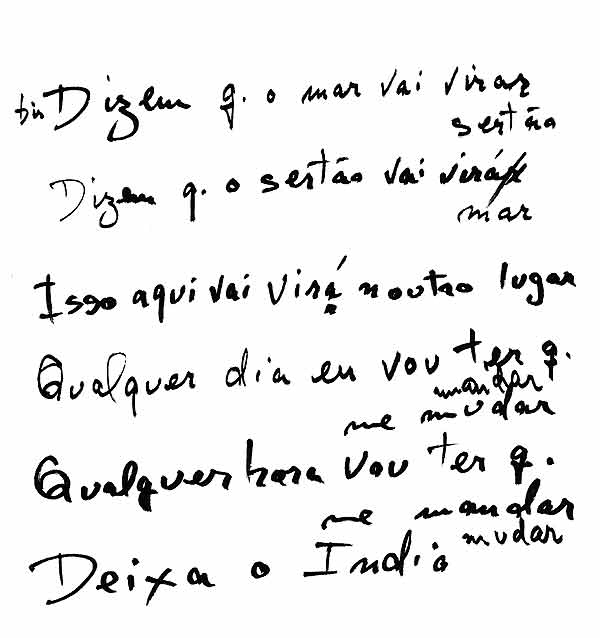 bis Dizem q. o mar vai virar
sertão
Dizem q. o sertão vai virá
mar
Isso aqui vai virá noutro lugar
Qualquer dia eu vou ter q.
mandar
me mudar
Qualquer hora vou ter q.
me mandar
mudar
Deixa o Índio